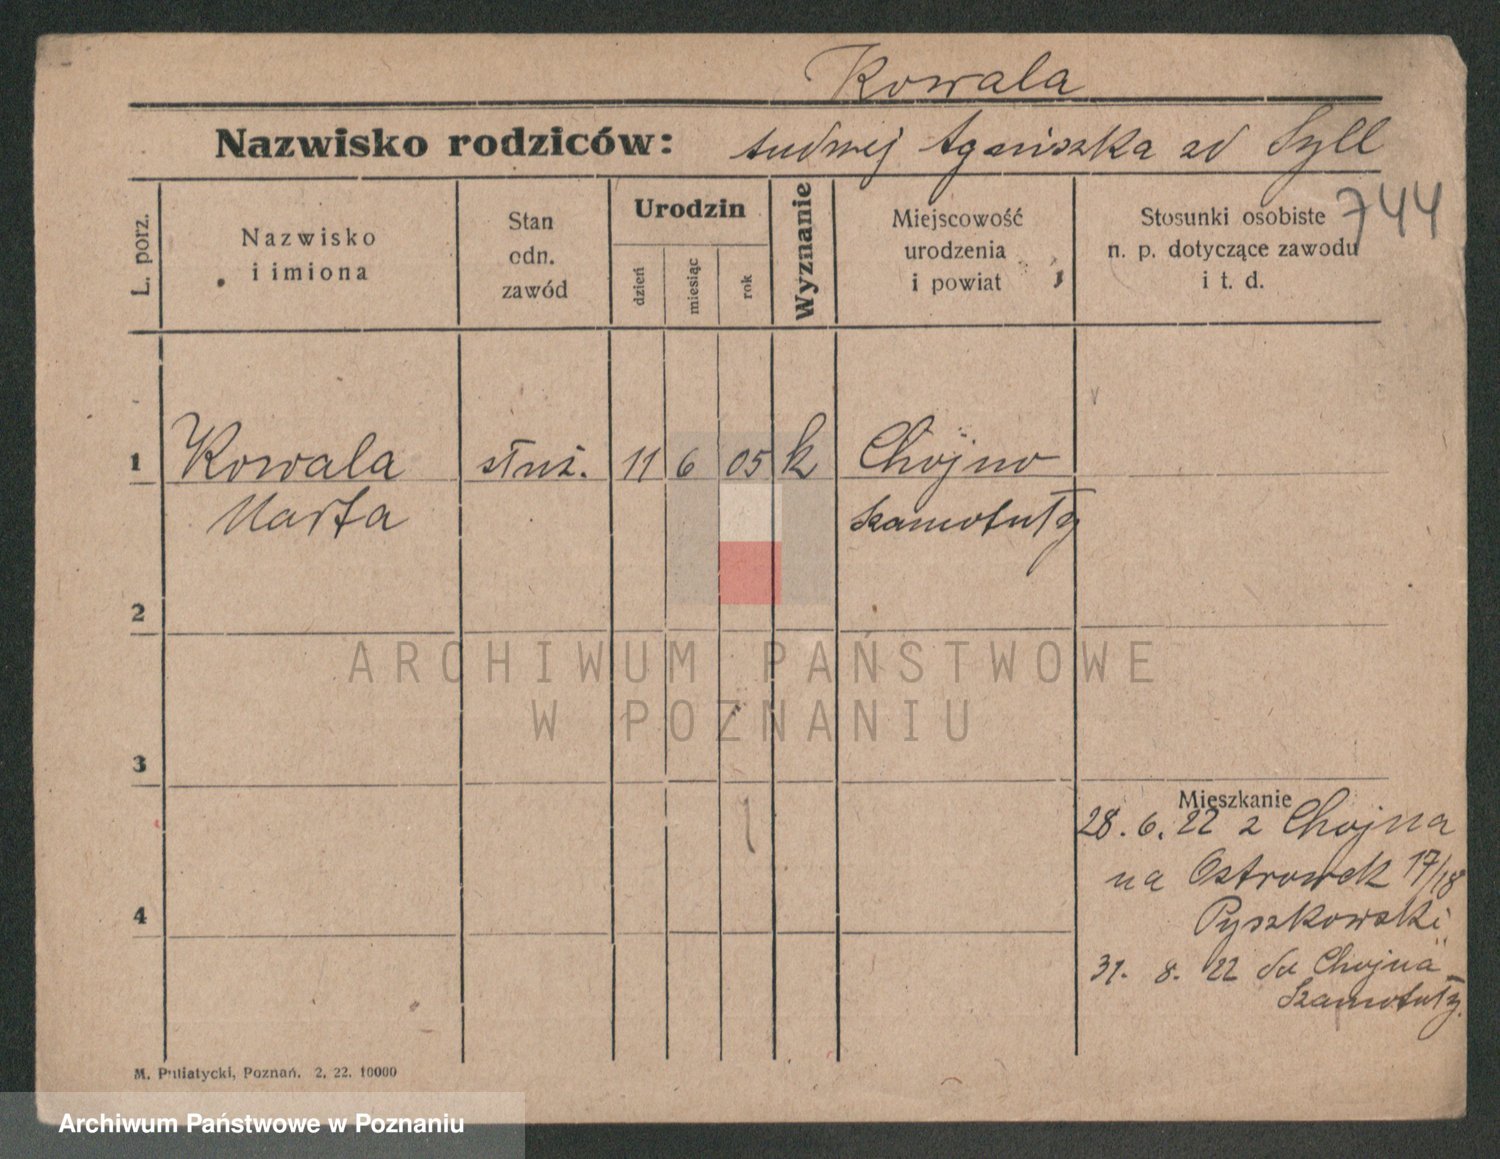 Kowala
Nazwisko rodziców: Ludwej Agniszka zd Syll
744
L. porz.
Nazwisko
i imiona
Stan
odn.
zawód
Urodzin
dzień
miesiąc
rok
Wyznanie
Miejscowość
urodzenia
i powiat
Stosunki osobiste
n. p. dotyczące zawodu
i t. d.
1 Kowala służ. 11 6 05 k Chojno
Marta Szamotuły
2
ARCHIWUM PAŃSTWOWE
W POZNANIU
3
Mieszkanie
28. 6. 22 z Chojna
na Ostrowek 17/18
Pyszkowski
4
31. 8. 22 do Chojna
Szamotuły.
M. Puliatycki, Poznań. 2. 22. 10000
Archiwum Państwowe w Poznaniu